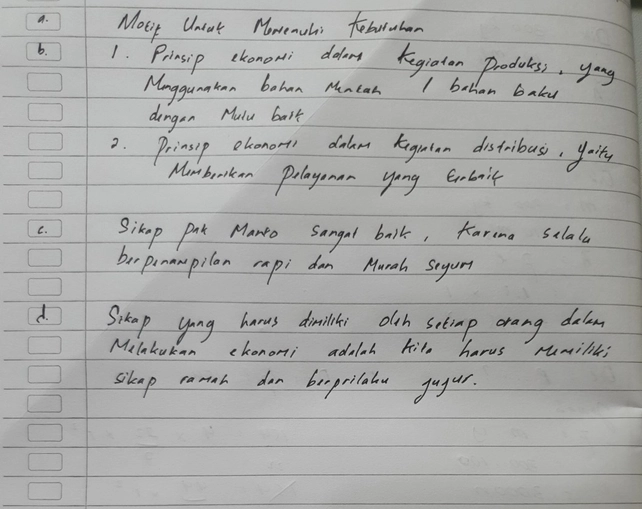 a. Motif Untuk Memenuhi Kebutuhan
b. 1. Prinsip ekonomi dalam kegiatan Produksi, yang
Menggunakan bahan mentah / bahan baku
dengan Mutu baik
2. Prinsip ekonomi dalam kegiatan distribusi, yaitu
Memberikan Pelayanan yang Terbaik
c. Sikap pak Manto sangat baik, karena selalu
berpenampilan rapi dan Murah Seyum
d. Sikap yang harus dimiliki oleh setiap orang dalam
Melakukan ekonomi adalah kita harus Memiliki
sikap ramah dan berprilaku jujur.